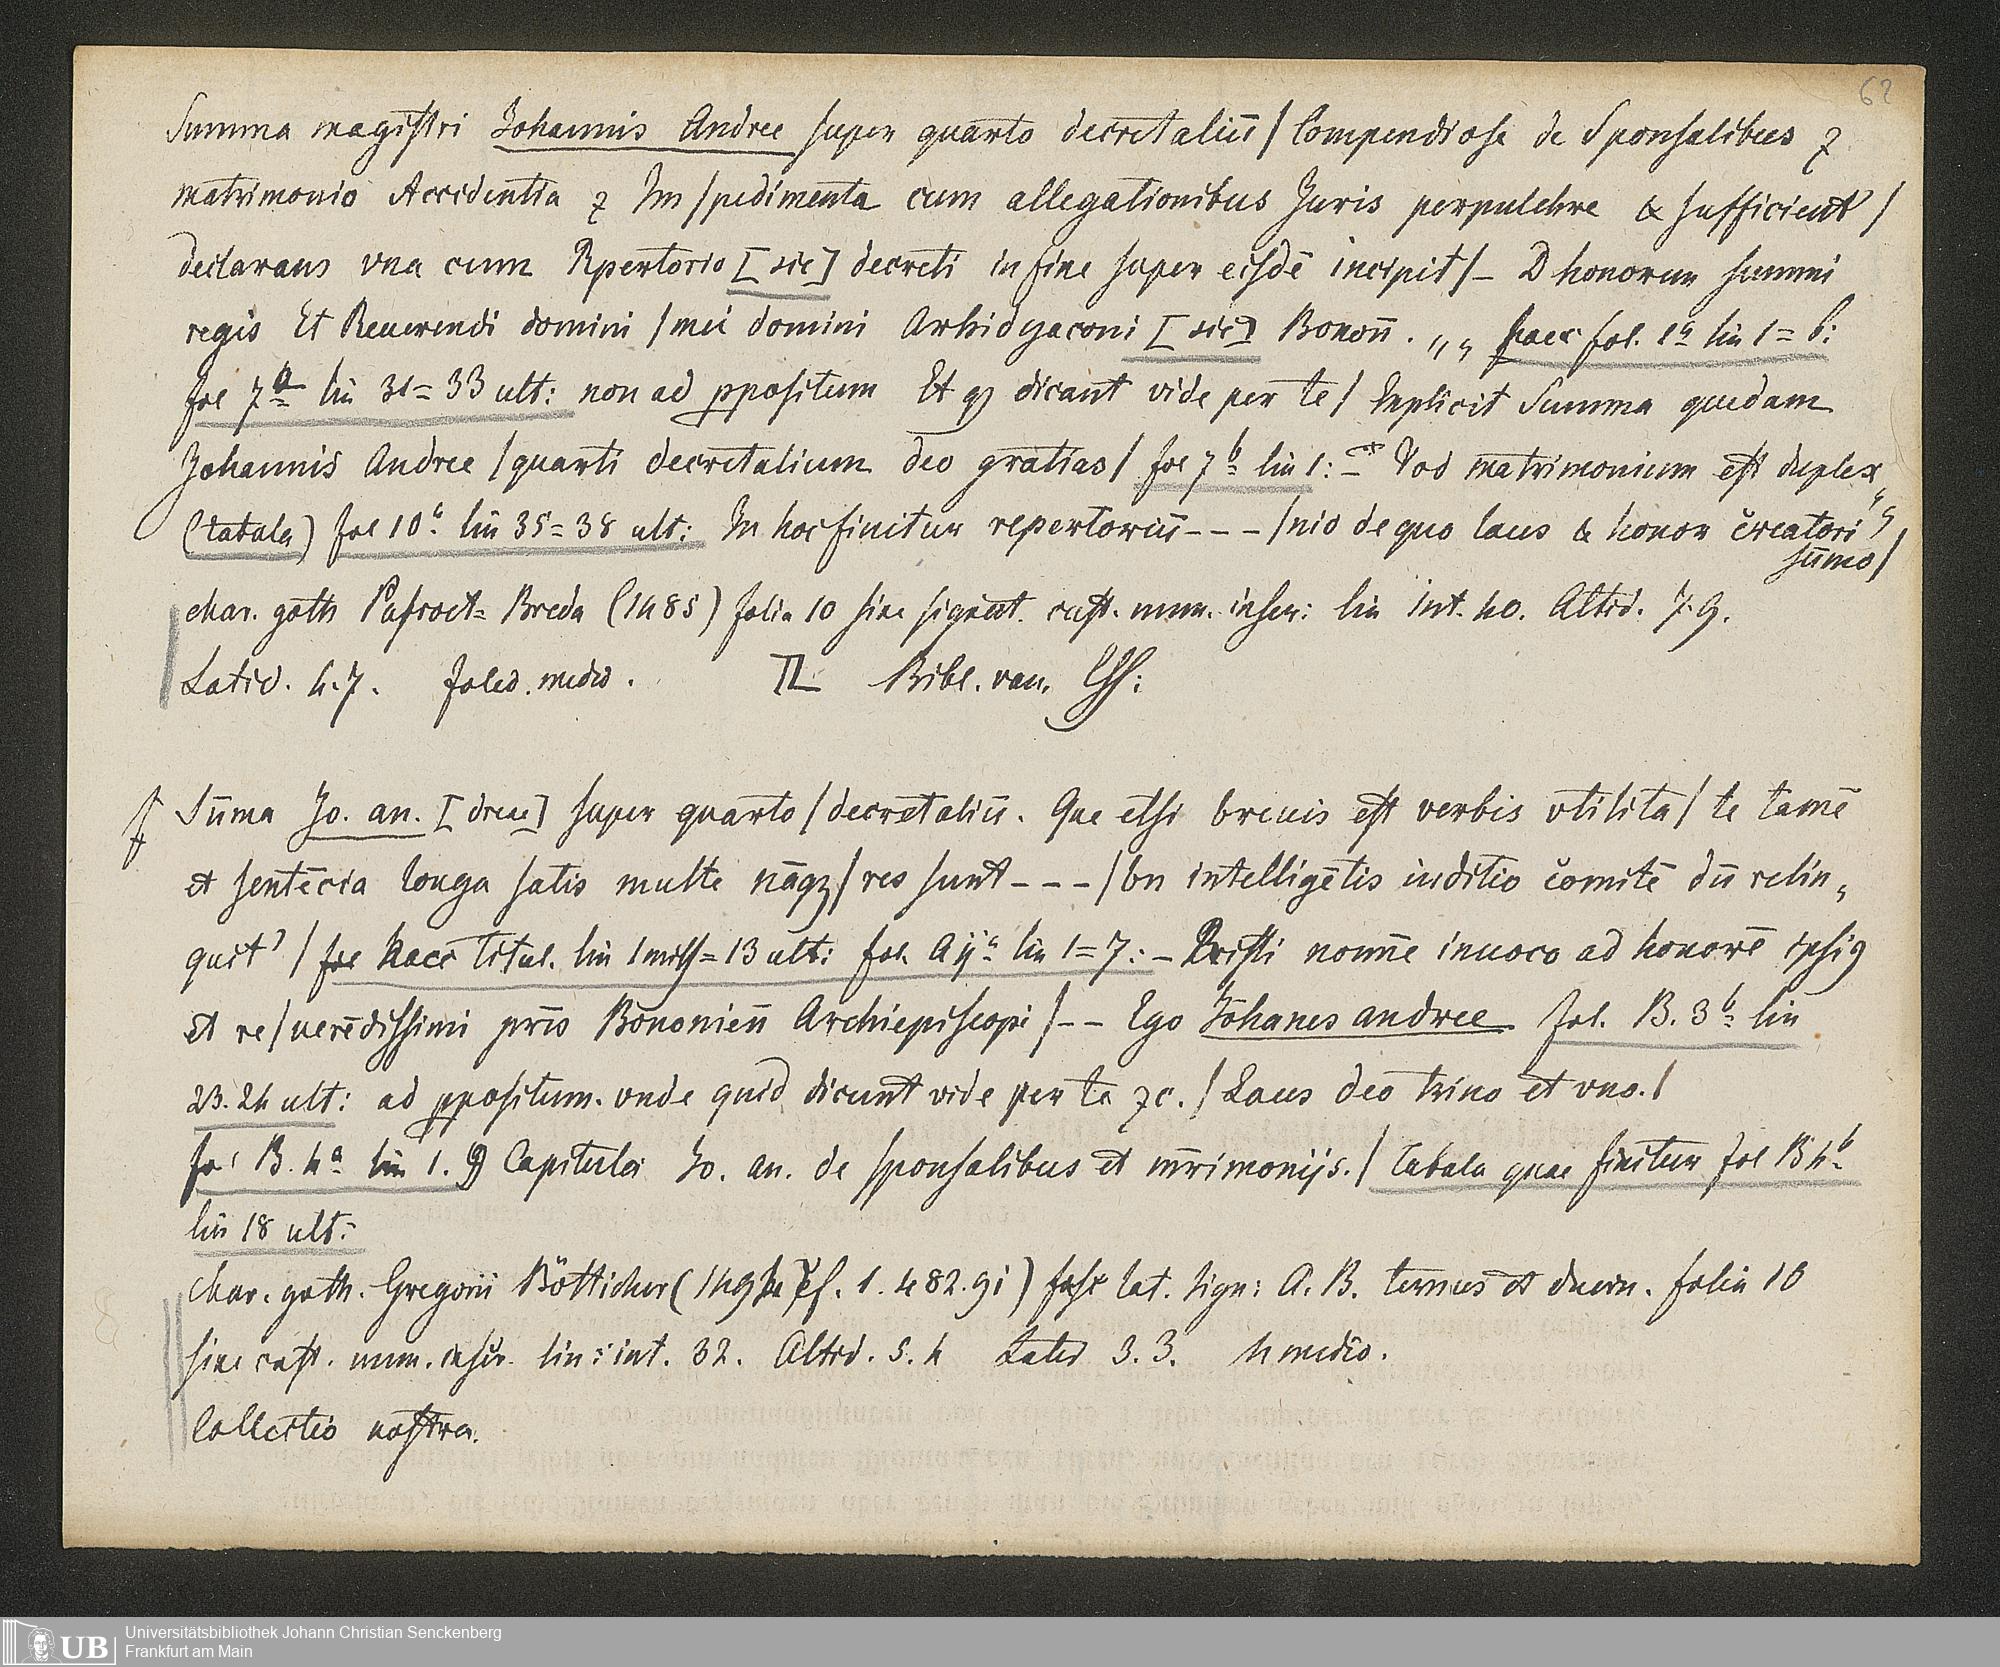 62
Summa magistri Johannis Andree super quarto decretaliū / Compendiose de Sponsalibus ⁊
matrimonio Accidentia ⁊ Im/pedimenta cum allegationibus Juris perpulchre & sufficient' /
declarans vna cum Rpertorio [sic] decreti in fine super eisdē incipit / – D honorem summi
regis Et Reuerendi domini / mei domini Arhidyaconi [sic] Bonoñ . „ „ haec fol. 1a lin 1 = 6:
fol 7a lin 31 = 33 ult: non ad ppositum Et qꝫ dicant vide per te / Explicit Summa quedam
Johannis Andree / quarti decretalium deo gratias / fol 7b lin 1: – Vod matrimonium est duplex „
(tabula) fol 10a lin 35 = 38 ult: In hoc finitur repertoriū - - - / nio de quo laus & honor creatori
sūmo /
char. goth Pafroet = Breda (1485) folia 10 sine signat. cust. num. inscr: lin int. 40. Altid. 7.9.
Latid. 4.7. foled. medio. TL Bibl. van. Ess:
Sūma Jo. an. [dree] super quarto / decretaliū. Que etsi breuis est verbis vtilita / te tamē
et sentēcia longa satis multe nāqꝫ / res sunt - - - / bn intelligētis iuditio comitē dū relin„
quit' / fol haec titul. lin 1 miss = 13 ult: fol. A ija lin 1 = 7: – Xristi nomine inuoco ad honorē ipsiꝰ
et re / uerēdissimi pris Bononieñ Archiepiscopi / - - Ego Johanes andree fol. B. 3b lin
23. 24 ult: ad ppositum. vnde quid dicunt vide per te ⁊c. / Laus deo trino et vno. /
fol B. 4a lin 1. Capitula Jo. an. de sponsalibus et mrimonijs. / tabula quae finitur fol B 4b
lin 18 ult:
char. goth. Gregorii Bötticher ( f. 1. 482. 91) lat. sign: A. B. ternus et duern. folia 10
sine cust. num. inscr. lin: int. 32. Altid. 5.4 Latid 3.3. 4 medio.
Collectio nostra.
UB Universitätsbibliothek Johann Christian Senckenberg
Frankfurt am Main